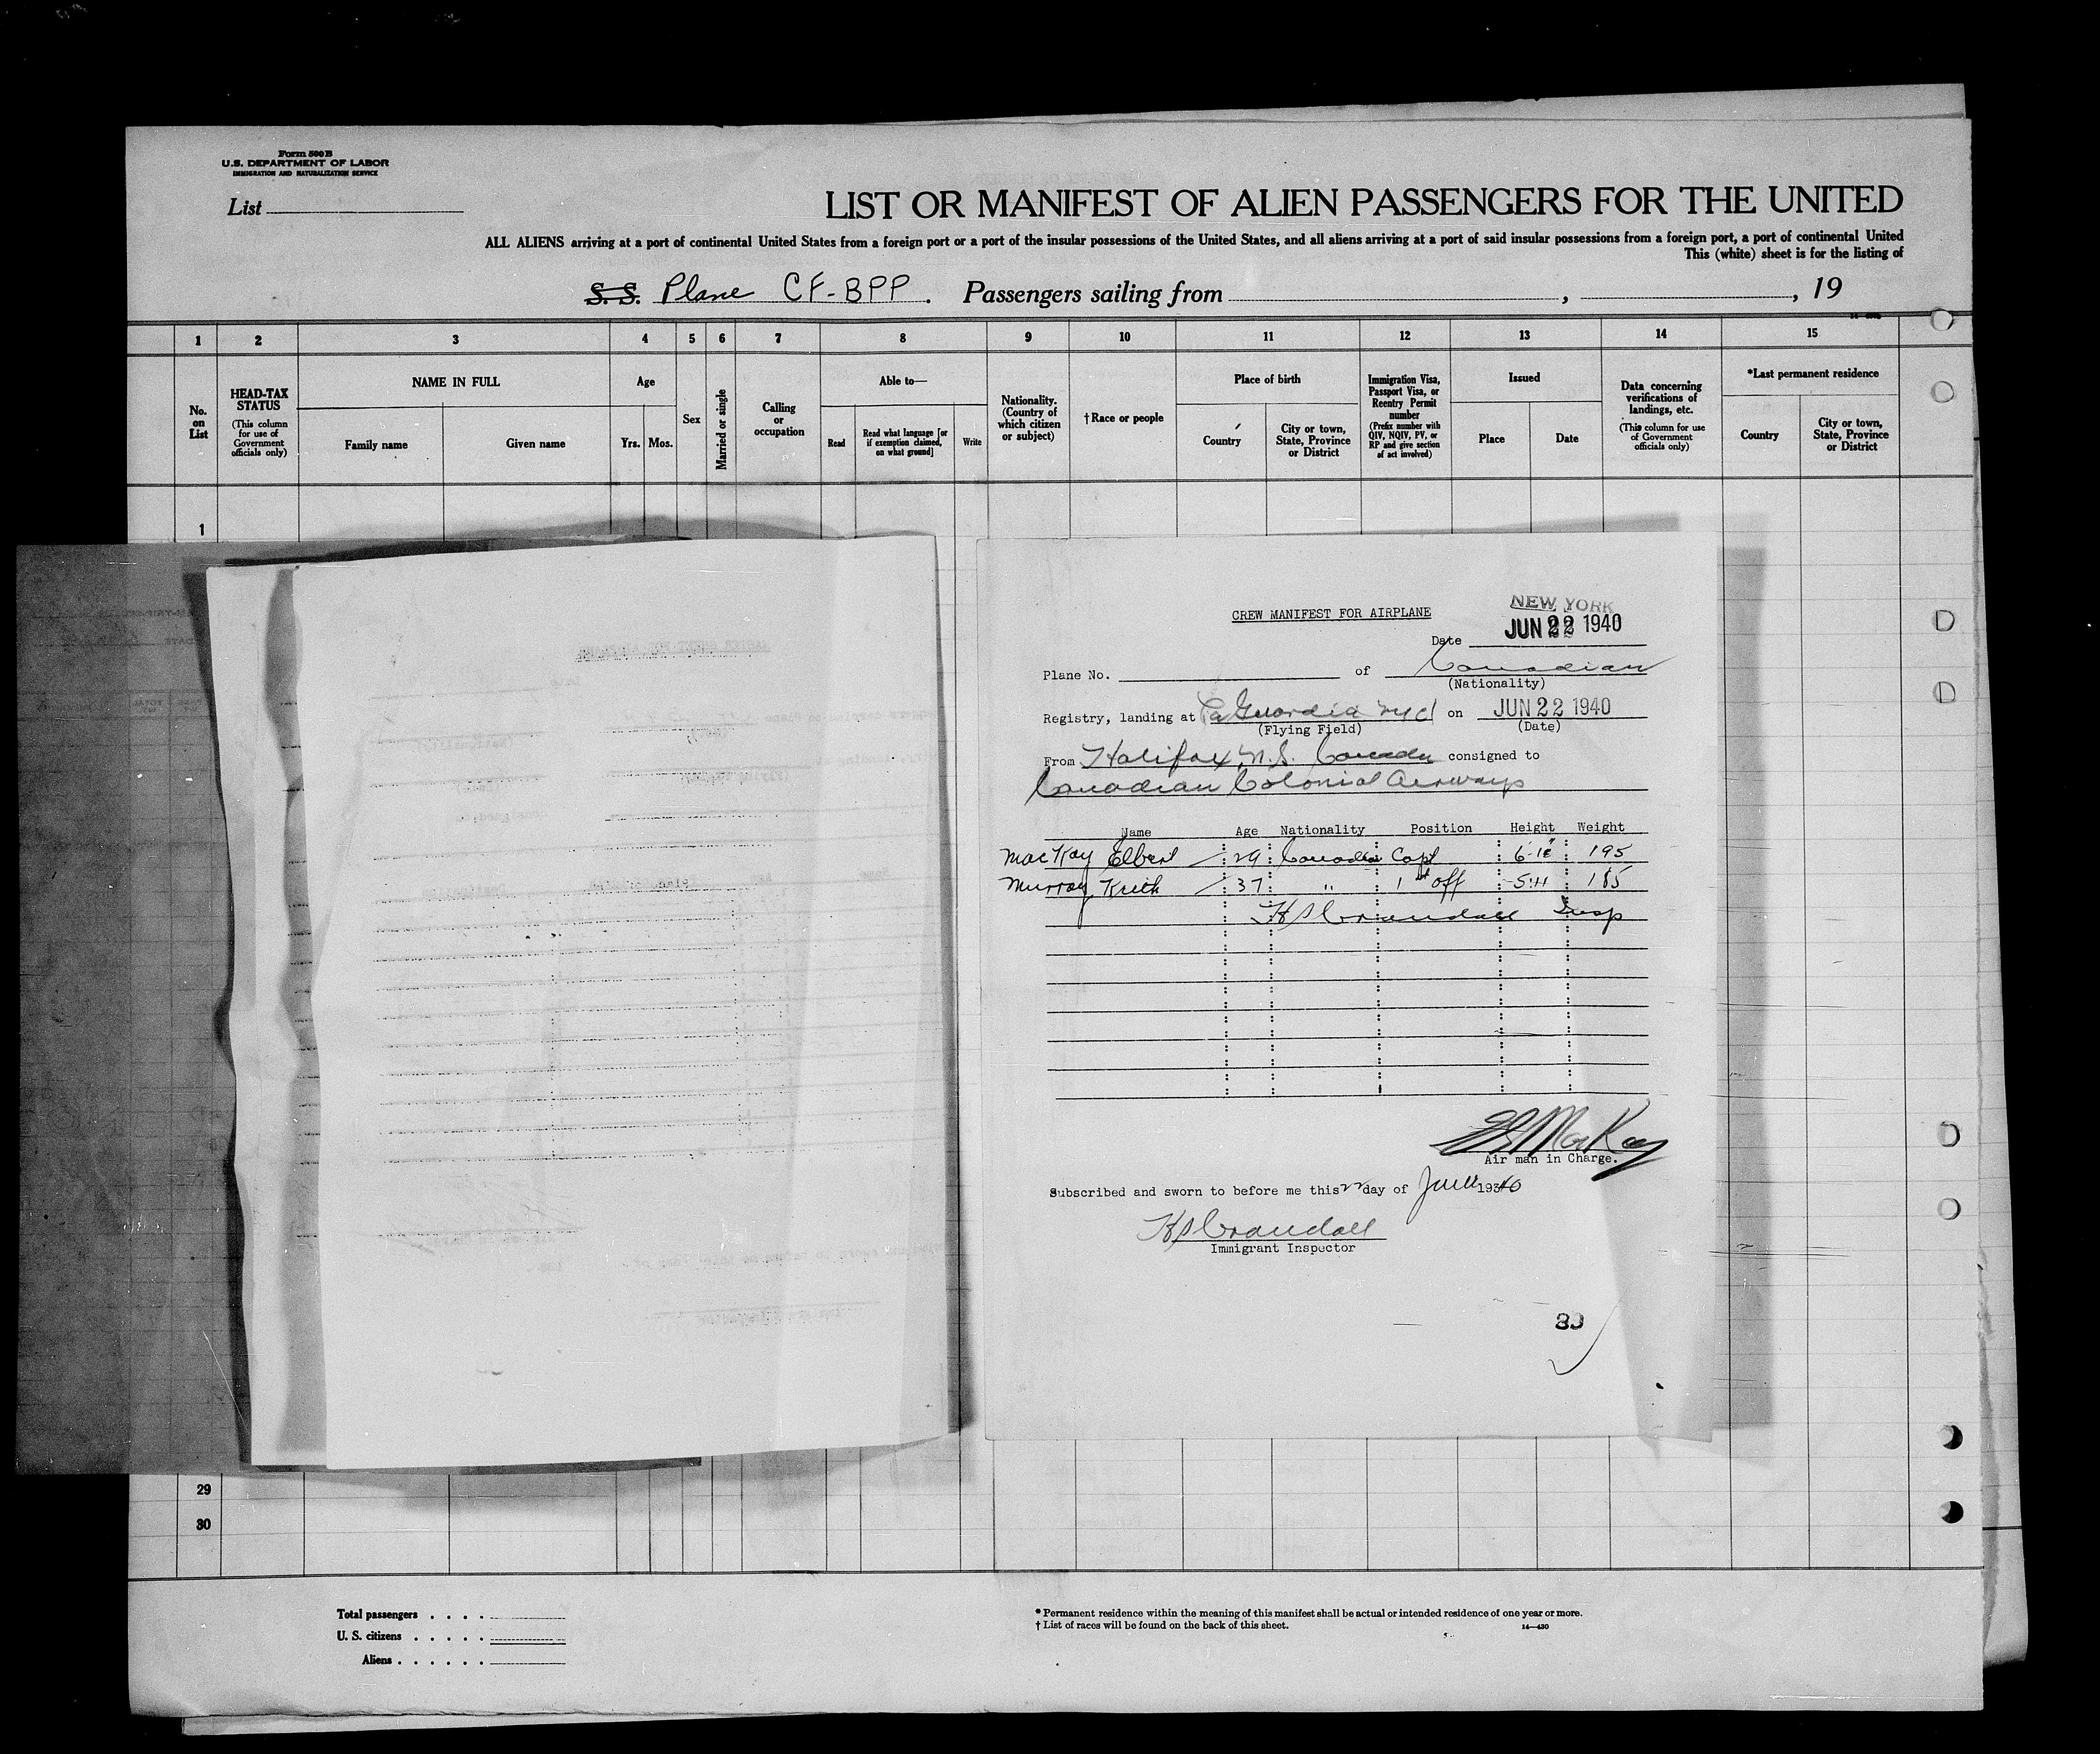 Form 500 B
U.S. DEPARTMENT OF LABOR
IMMIGRATION AND NATURALIZATION SERVICE
List
LIST OR MANIFEST OF ALIEN PASSENGERS FOR THE UNITED
ALL ALIENS arriving at a port of continental United States from a foreign port or a port of the insular possessions of the United States, and all aliens arriving at a port of said insular possessions from a foreign port, a port of continental United
This (white) sheet is for the listing of
S. S. Plane CF-BPP. Passengers sailing from , , 19
1 2 3 4 5 6 7 8 9 10 11 12 13 14 15
No. on List
HEAD-TAX STATUS
(This column for use of Government officials only)
NAME IN FULL
Family name Given name
Age
Yrs. Mos.
Sex
Married or single
Calling or occupation
Able to—
Read
Read what language [or if exemption claimed, on what ground]
Write
Nationality. (Country of which citizen or subject)
†Race or people
Place of birth
Country
City or town, State, Province or District
Immigration Visa, Passport Visa, or Reentry Permit number
(Prefix number with QIV, NQIV, PV, or RP and give section of act involved)
Issued
Place Date
Data concerning verifications of landings, etc.
(This column for use of Government officials only)
*Last permanent residence
Country
City or town, State, Province or District
1
CREW MANIFEST FOR AIRPLANE
NEW YORK
Date JUN 22 1940
Plane No. of Canadian
(Nationality)
Registry, landing at La Guardia on JUN 22 1940
(Flying Field) (Date)
From Halifax, N.S. Canada consigned to
Canadian Colonial Airways
Name Age Nationality Position Height Weight
MacKay Elbert 29 Canadian Capt 6-1½" 195
Murray Keith 37 " 1st off 5-11 185
H S Crandall Insp
E S MacKay
Air man in Charge.
Subscribed and sworn to before me this 22 day of June 1940
H S Crandall
Immigrant Inspector
29
30
Total passengers
U. S. citizens
Aliens
* Permanent residence within the meaning of this manifest shall be actual or intended residence of one year or more.
† List of races will be found on the back of this sheet.
14—430